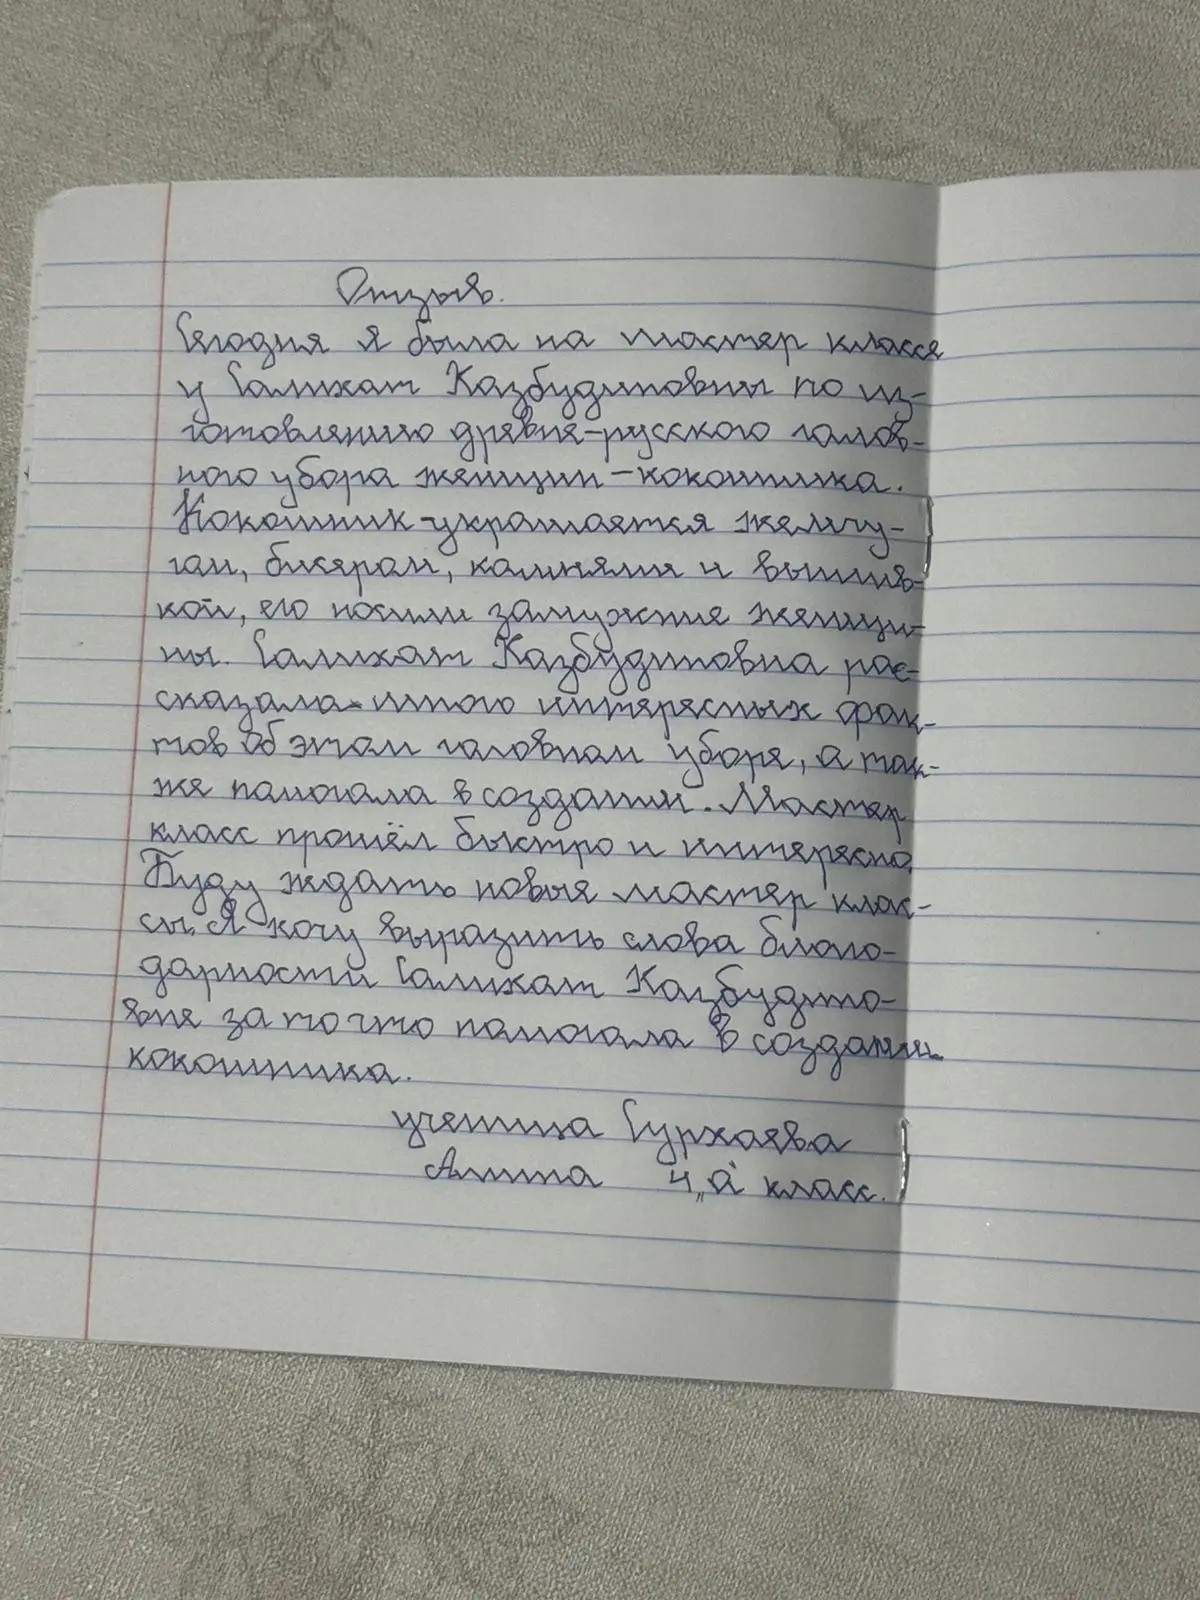 Отзыв.
Сегодня я была на мастер классе
у Салихат Казбудиновны по из-
готовлению древне-русского голов-
ного убора женщин - кокошника.
Кокошник - украшается жемчу-
гом, бисером, камнями и вышив-
кой, его носили замужние женщи-
ны. Салихат Казбудиновна рас-
сказала много интересных фак-
тов об этом головном уборе, а так-
же помогала в создании. Мастер
класс прошёл быстро и интересно.
Буду ждать новые мастер клас-
сы. Я хочу выразить слова благо-
дарности Салихат Казбудино-
вне за то что помогала в создании
кокошника.
ученица Сурхаева
Амина 4 „а" класс.